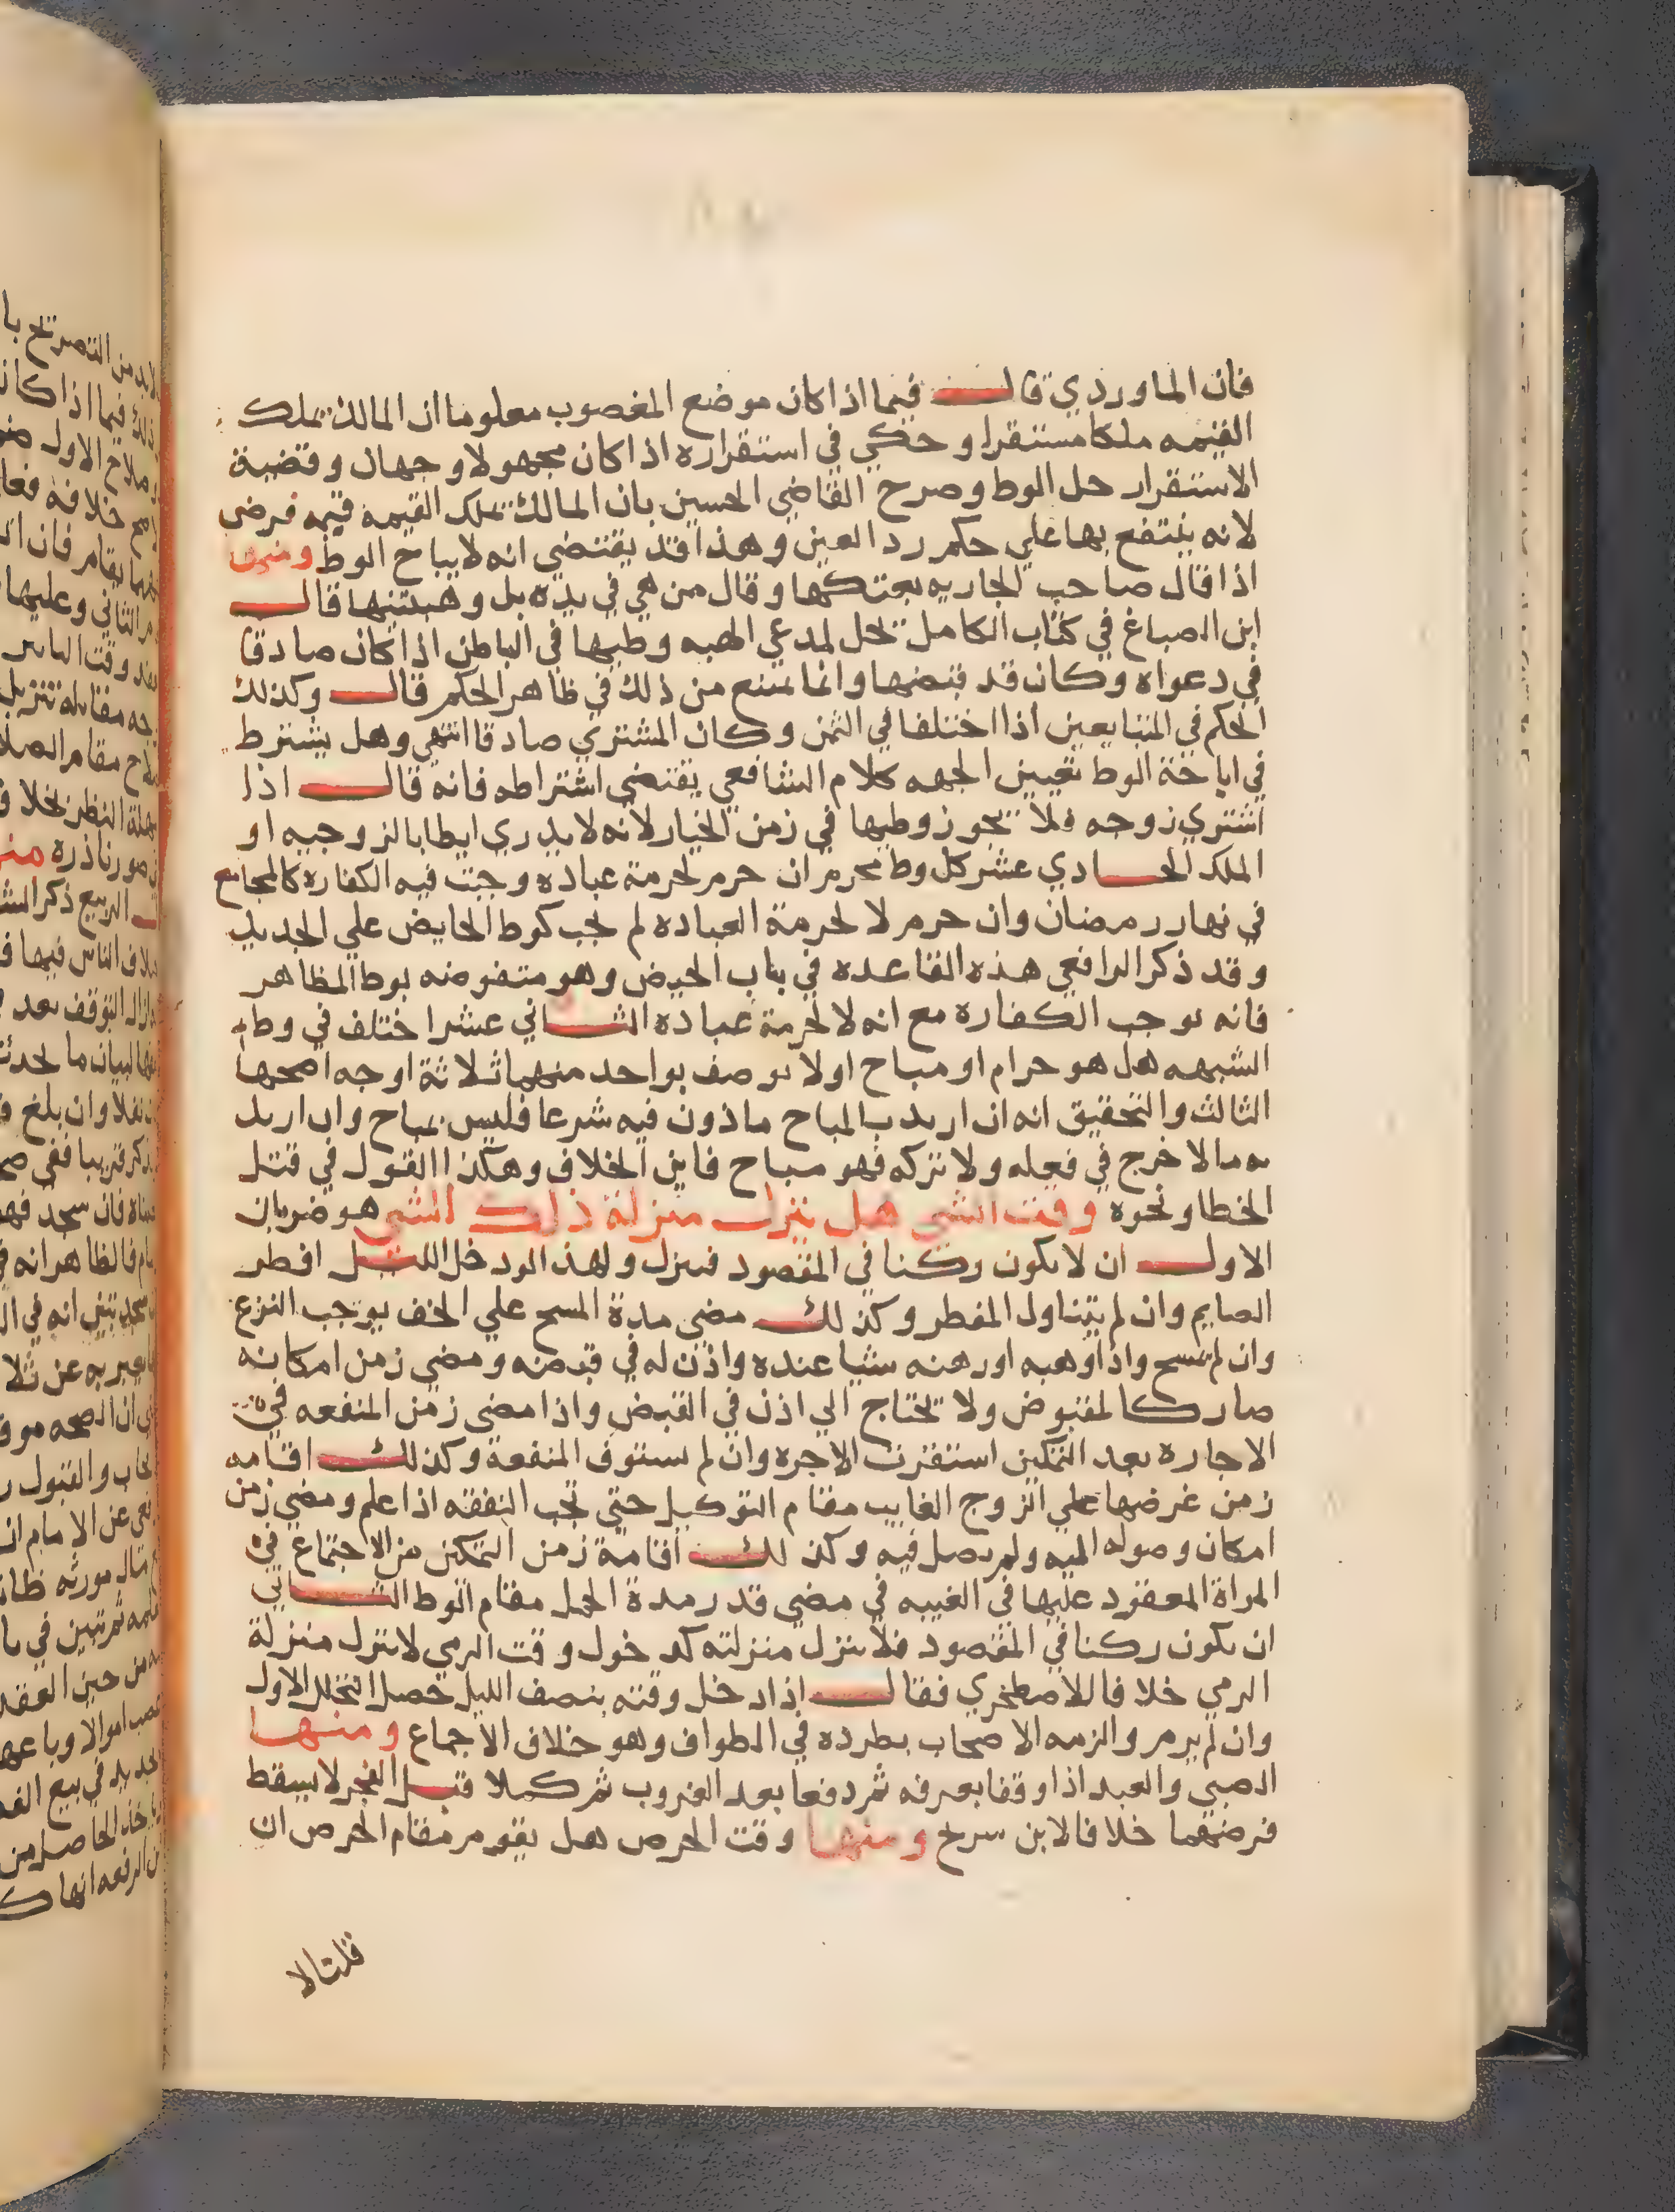 فان الماوردي قال فيما اذا كان موضع المغصوب معلوما ان المالك تملك
القيمه ملكا مستقرا وحكي في استقراره اذا كان مجهولا وجهان وقضية
الاستقرار حل الوط وصرح القاضي الحسين بان المالك تملك القيمه قيمه فرض
لانه ينتفع بها علي حكم رد العين وهذا قد يقتضي انه لا يباح الوط ومنها
اذا قال صاحب الجاريه بعتكها وقال من هي في يده بل وهبتنيها قال
ابن الصباغ في كتاب الكامل تحل لمدعي الهبه وطيها في الباطن اذا كان صادقا
في دعواه وكان قد قبضها وانما تمنع من ذلك في ظاهر الحكم قال وكذلك
الحكم في المتبايعين اذا اختلفا في الثمن وكان المشتري صادقا انتهي وهل يشترط
في اباحة الوط تعيين الجهه كلام الشافعي يقتضي اشتراطه فانه قال اذا
اشتري زوجه فلا تجوز وطيها في زمن الخيار لانه لا يدري ايطا بالزوجيه او
الملك الحادي عشر كل وط محرم ان حرم لحرمة عباده وجبت فيه الكفاره كالمجامع
في نهار رمضان وان حرم لا لحرمة العباده لم تجب كوط الحايض علي الجديد
وقد ذكر الرافعي هذه القاعده في باب الحيض وهو منقوضه بوط المظاهر
فانه يوجب الكفاره مع انه لا لحرمة عباده الثاني عشر اختلف في وطء
الشبهه هل هو حرام او مباح او لا يوصف بواحد منهما ثلاثة اوجه اصحها
الثالث والتحقيق انه ان اريد بالمباح ماذون فيه شرعا فليس بمباح وان اريد
به ما لا حرج في فعله ولا تركه فهو مباح فاين الخلاف وهكذا القول في قتل
الخطا ونحوه وقت الشي هل ينزل منزلة ذلك الشي هو ضربان
الاول ان لا يكون ركنا في المقصود فينزل ولهذا لو دخل الليل افطر
الصايم وان لم يتناول المفطر وكذلك مضي مدة المسح علي الخف يوجب النزع
وان لم يمسح واذا وهبه او رهنه شيا عنده واذن له في قبضه ومضي زمن امكانه
صار كالمقبوض ولا تحتاج الي اذن في القبض واذا مضي زمن المنفعه في
الاجاره بعد التمكين استقرت الاجره وان لم يستوف المنفعة وكذلك اقامه
زمن عرضها علي الزوج الغايب مقام التوكيل حتي تجب النفقه اذا علم ومضي زمن
امكان وصوله اليه ولم يصل فيه وكذلك اقامة زمن التمكن من الاجتماع في
المراة المعقود عليها في الغيبه في مضي قدر مدة الحمل مقام الوط الثاني
ان يكون ركنا في المقصود فلا ينزل منزلته كدخول وقت الرمي لا ينزل منزلة
الرمي خلافا للاصطخري فقال اذا دخل وقته بنصف الليل حصل التحلل الاول
وان لم يرم والزمه الاصحاب بطرده في الطواف وهو خلاف الاجماع ومنها
الصبي والعبد اذا وقفا بعرفه ثم دفعا بعد الغروب ثم كملا قبل الفجر لا يسقط
فرضهما خلافا لابن سريج ومنها وقت الخرص هل يقوم مقام الخرص ان
قلنا لا